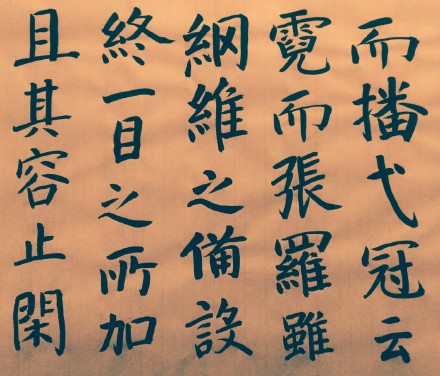 而播弋冠云
霓而張羅雖
綱維之備設
終一目之所加
且其容止閑